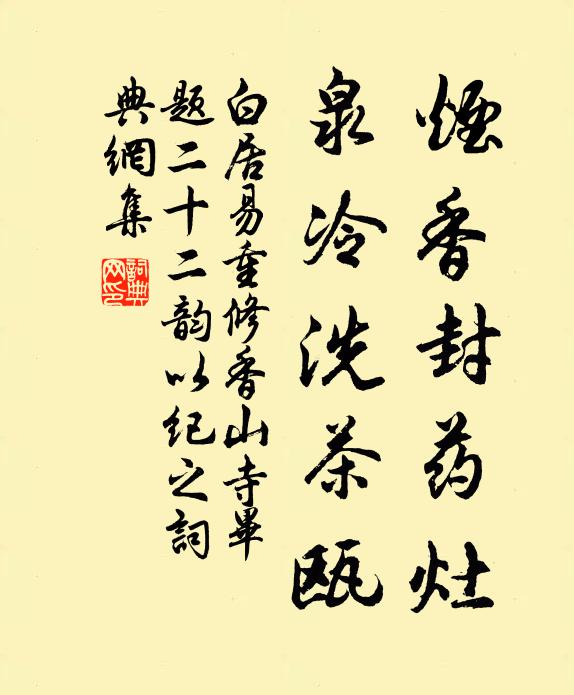 煙香封药灶
泉冷洗茶瓯
白居易重修香山寺畢
题二十二韵以纪之詞
典網集
詞典
网印